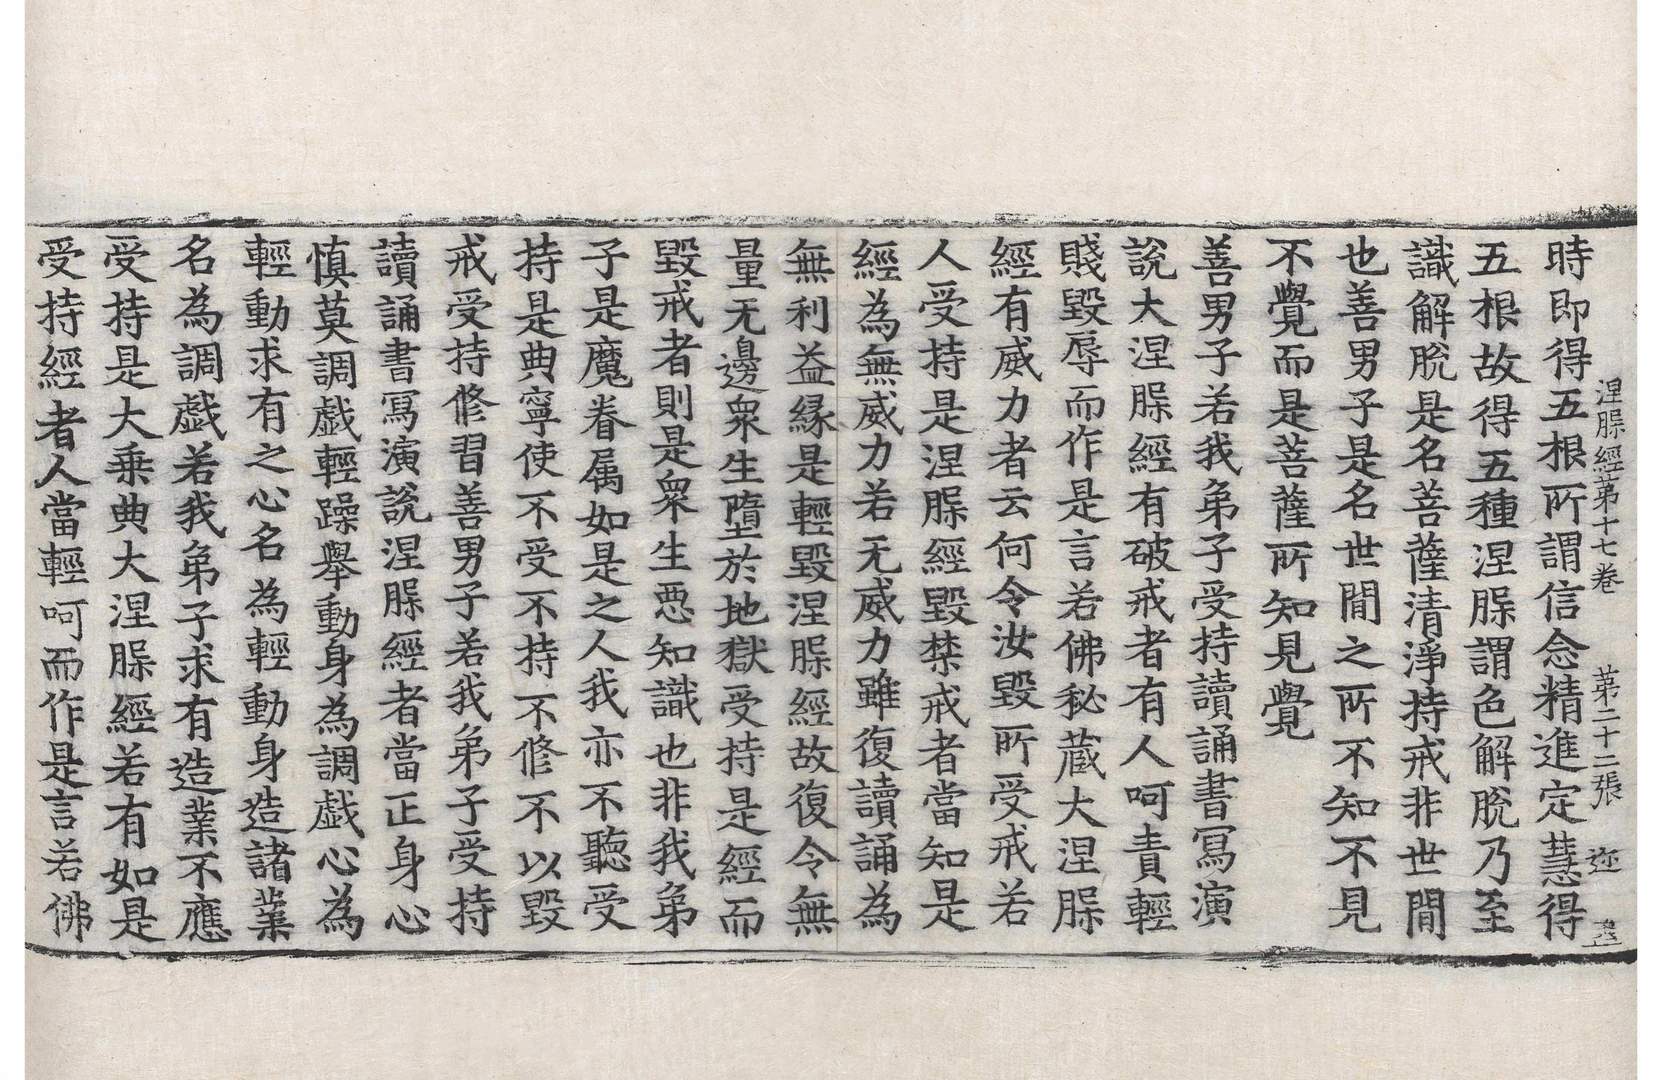 涅槃經第十七卷 第二十二張 迩
時即得五根所謂信念精進定慧得
五根故得五種涅槃謂色解脫乃至
識解脫是名菩薩清淨持戒非世間
也善男子是名世間之所不知不見
不覺而是菩薩所知見覺
善男子若我弟子受持讀誦書寫演
說大涅槃經有破戒者有人呵責輕
賤毀辱而作是言若佛秘藏大涅槃
經有威力者云何令汝毀所受戒若
人受持是涅槃經毀禁戒者當知是
經為無威力若无威力雖復讀誦為
無利益緣是輕毀涅槃經故復令無
量无邊衆生墮於地獄受持是經而
毀戒者則是衆生惡知識也非我弟
子是魔眷属如是之人我亦不聽受
持是典寧使不受不持不修不以毀
戒受持修習善男子若我弟子受持
讀誦書寫演說涅槃經者當正身心
慎莫調戲輕躁舉動身為調戲心為
輕動求有之心名為輕動身造諸業
名為調戲若我弟子求有造業不應
受持是大乘典大涅槃經若有如是
受持經者人當輕呵而作是言若佛